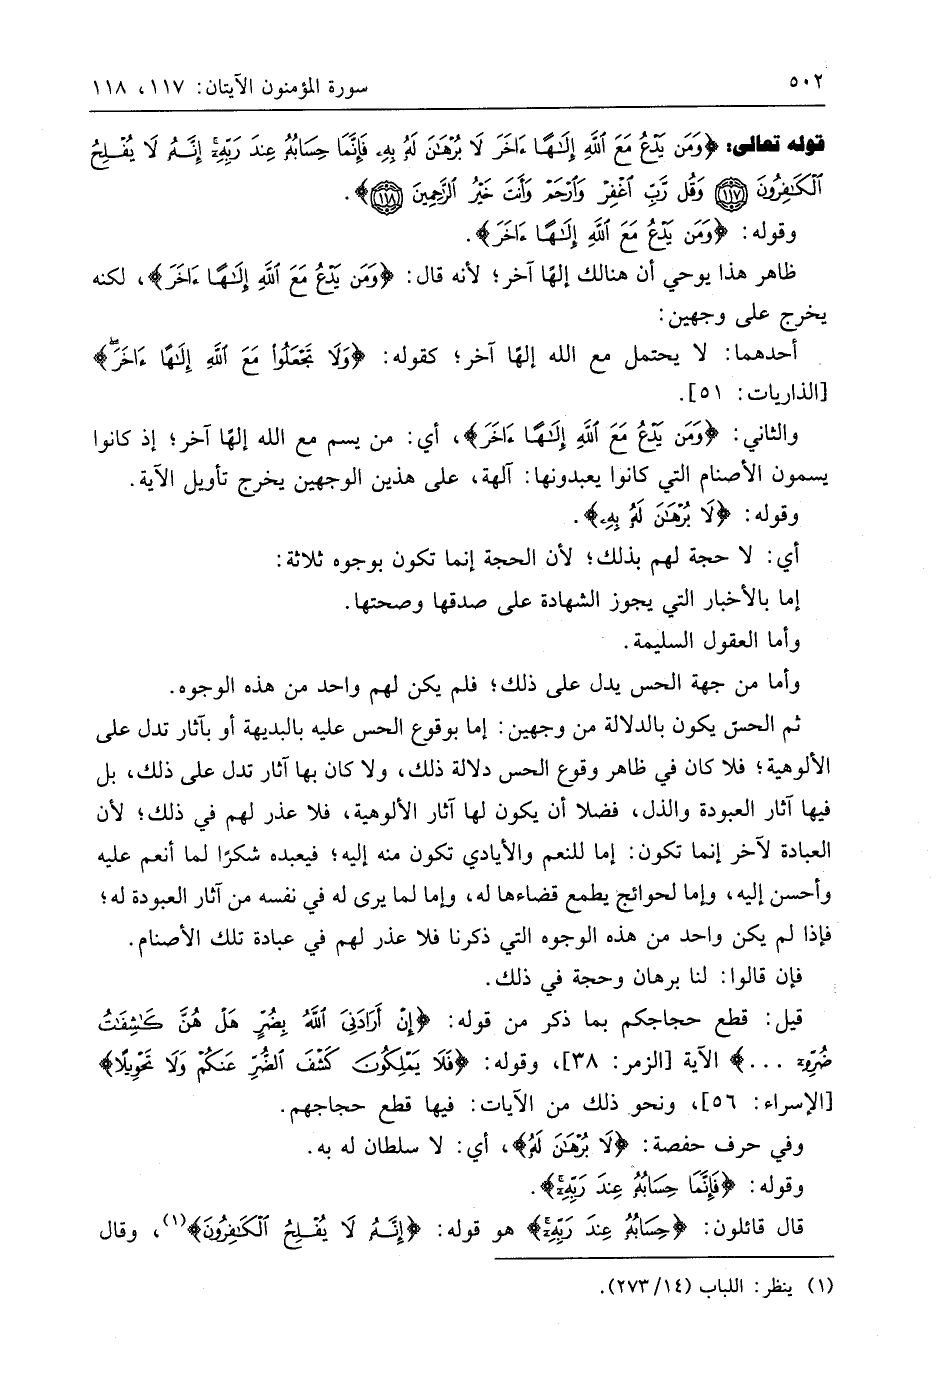 ٥٠٢
سورة المؤمنون الآيتان: ١١٧، ١١٨
قوله تعالى: ﴿وَمَن يَدْعُ مَعَ ٱللَّهِ إِلَـٰهًا ءَاخَرَ لَا بُرْهَـٰنَ لَهُۥ بِهِۦ فَإِنَّمَا حِسَابُهُۥ عِندَ رَبِّهِۦٓ إِنَّهُۥ لَا يُفْلِحُ
ٱلْكَـٰفِرُونَ ﴿١١٧﴾ وَقُل رَّبِّ ٱغْفِرْ وَٱرْحَمْ وَأَنتَ خَيْرُ ٱلرَّٰحِمِينَ ﴿١١٨﴾﴾.
وقوله: ﴿وَمَن يَدْعُ مَعَ ٱللَّهِ إِلَـٰهًا ءَاخَرَ﴾.
ظاهر هذا يوحي أن هنالك إلهًا آخر؛ لأنه قال: ﴿وَمَن يَدْعُ مَعَ ٱللَّهِ إِلَـٰهًا ءَاخَرَ﴾، لكنه
يخرج على وجهين:
أحدهما: لا يحتمل مع الله إلهًا آخر؛ كقوله: ﴿وَلَا تَجْعَلُوا۟ مَعَ ٱللَّهِ إِلَـٰهًا ءَاخَرَۖ﴾
[الذاريات: ٥١].
والثاني: ﴿وَمَن يَدْعُ مَعَ ٱللَّهِ إِلَـٰهًا ءَاخَرَ﴾، أي: من يسم مع الله إلهًا آخر؛ إذ كانوا
يسمون الأصنام التي كانوا يعبدونها: آلهة، على هذين الوجهين يخرج تأويل الآية.
وقوله: ﴿لَا بُرْهَـٰنَ لَهُۥ بِهِۦ﴾.
أي: لا حجة لهم بذلك؛ لأن الحجة إنما تكون بوجوه ثلاثة:
إما بالأخبار التي يجوز الشهادة على صدقها وصحتها.
وأما العقول السليمة.
وأما من جهة الحس يدل على ذلك؛ فلم يكن لهم واحد من هذه الوجوه.
ثم الحسّ يكون بالدلالة من وجهين: إما بوقوع الحس عليه بالبديهة أو بآثار تدل على
الألوهية؛ فلا كان في ظاهر وقوع الحس دلالة ذلك، ولا كان بها آثار تدل على ذلك، بل
فيها آثار العبودة والذل، فضلا أن يكون لها آثار الألوهية، فلا عذر لهم في ذلك؛ لأن
العبادة لآخر إنما تكون: إما للنعم والأيادي تكون منه إليه؛ فيعبده شكرًا لما أنعم عليه
وأحسن إليه، وإما لحوائج يطمع قضاءها له، وإما لما يرى له في نفسه من آثار العبودة له؛
فإذا لم يكن واحد من هذه الوجوه التي ذكرنا فلا عذر لهم في عبادة تلك الأصنام.
فإن قالوا: لنا برهان وحجة في ذلك.
قيل: قطع حجاجكم بما ذكر من قوله: ﴿إِنْ أَرَادَنِىَ ٱللَّهُ بِضُرٍّ هَلْ هُنَّ كَـٰشِفَـٰتُ
ضُرِّهِۦٓ ...﴾ الآية [الزمر: ٣٨]، وقوله: ﴿فَلَا يَمْلِكُونَ كَشْفَ ٱلضُّرِّ عَنكُمْ وَلَا تَحْوِيلًا﴾
[الإسراء: ٥٦]، ونحو ذلك من الآيات: فيها قطع حجاجهم.
وفي حرف حفصة: ﴿لَا بُرْهَـٰنَ لَهُۥ﴾، أي: لا سلطان له به.
وقوله: ﴿فَإِنَّمَا حِسَابُهُۥ عِندَ رَبِّهِۦٓ﴾.
قال قائلون: ﴿حِسَابُهُۥ عِندَ رَبِّهِۦٓ﴾ هو قوله: ﴿إِنَّهُۥ لَا يُفْلِحُ ٱلْكَـٰفِرُونَ﴾(١)، وقال
(١) ينظر: اللباب (١٤/ ٢٧٣).